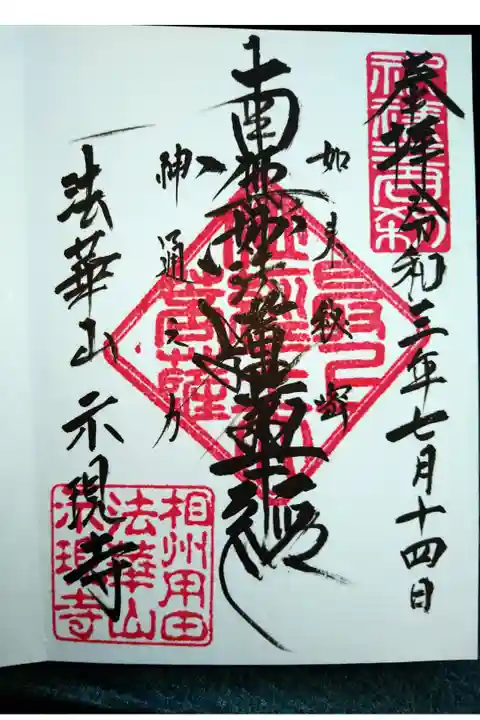 奉拝 令和三年七月十四日
如来秘密
南無妙法蓮華経
神通之力
法華山 示現寺
最上
菩薩
相州用田
法華山
示現寺